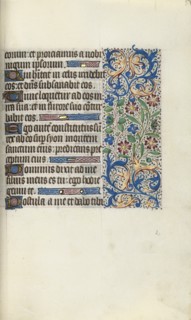 eorum et proiciamus a nobis
iugum ipsorum.
Qui habitat in celis irridebit
eos et dñs subsanabit eos.
Tunc loquetur ad eos in
ira sua et in furore suo cõtur
babit eos.
Ego autẽ constitutus sũ
rex ab eo sup syon montem
sanctum eius: predicans pre
ceptum eius.
Dominus dixit ad me
filius meus es tu: ego hodie
genui te.
Postula a me et dabo tibi